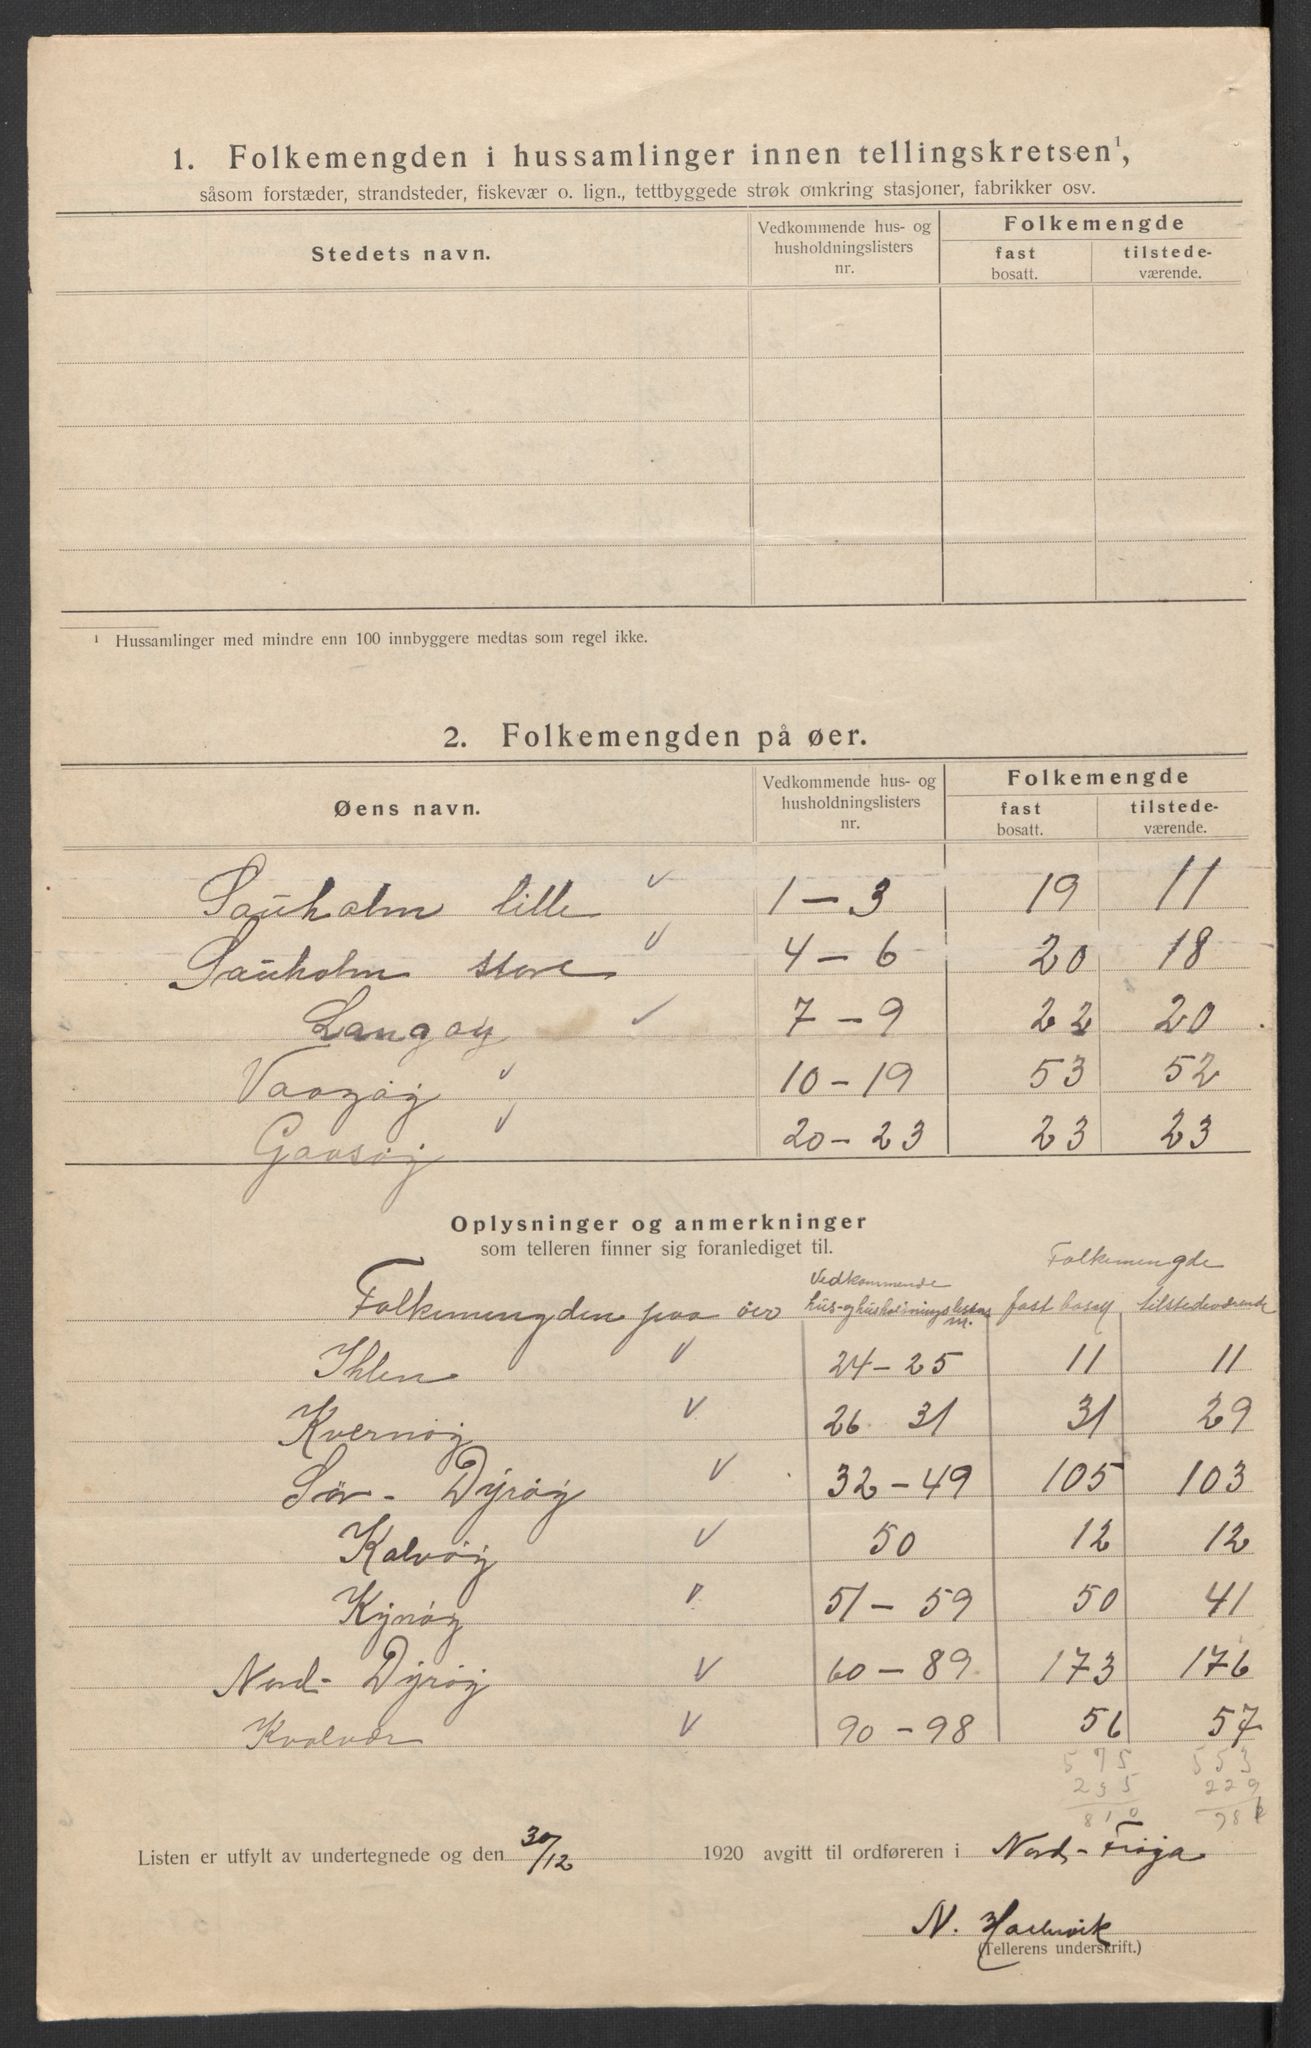 1. Folkemengden i hussamlinger innen tellingskretsen¹,
såsom forstæder, strandsteder, fiskevær o. lign., tettbyggede strøk omkring stasjoner, fabrikker osv.
Stedets navn.
Vedkommende hus- og husholdningslisters nr.
Folkemengde
fast bosatt.
tilstede-værende.
¹ Hussamlinger med mindre enn 100 innbyggere medtas som regel ikke.
2. Folkemengden på øer.
Øens navn.
Vedkommende hus- og husholdningslisters nr.
Folkemengde
fast bosatt.
tilstede-værende.
Sauholm lille 1 – 3 19 11
Sauholm store 4 – 6 20 18
Langøy 7 – 9 22 20
10 – 19 53 52
20 – 23 23 23
Oplysninger og anmerkninger
som telleren finner sig foranlediget til.
Folkemengde
Vedkommende
Folkemengden paa øer hus- og husholdningslisters nr. fast bosatt tilstedeværende
Ihlen 24 – 25 11 11
Kvernøy 26 31 31 29
Sør - Dyrøy 32 – 49 105 103
Kalvøy 50 12 12
Kynøy 51 – 59 50 41
Nord - Dyrøy 60 – 89 173 176
Kvalvær 90 – 98 56 57
575 553
235 229
810
Listen er utfylt av undertegnede og den 30/12 1920 avgitt til ordføreren i Nord-Frøja
N.
(Tellerens underskrift.)